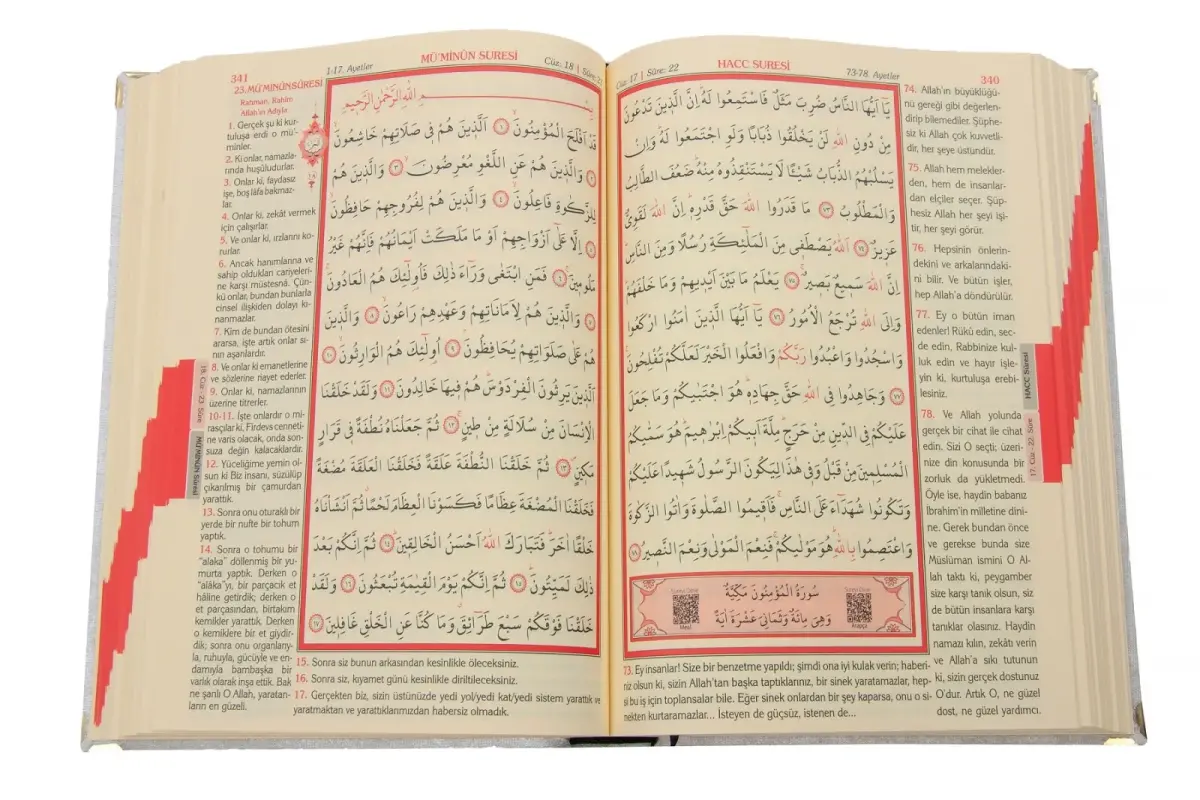 Cüz: 17 | Sûre: 22
HACC SURESİ
73-78. Ayetler
340
يَٓا اَيُّهَا النَّاسُ ضُرِبَ مَثَلٌ فَاسْتَمِعُوا لَهُ اِنَّ الَّذ۪ينَ تَدْعُونَ
مِنْ دُونِ اللّٰهِ لَنْ يَخْلُقُوا ذُبَابًا وَلَوِ اجْتَمَعُوا لَهُ وَاِنْ
يَسْلُبْهُمُ الذُّبَابُ شَيْـًٔا لَا يَسْتَنْقِذُوهُ مِنْهُ ضَعُفَ الطَّالِبُ
وَالْمَطْلُوبُ ﴿٧٣﴾ مَا قَدَرُوا اللّٰهَ حَقَّ قَدْرِه۪ اِنَّ اللّٰهَ لَقَوِيٌّ
عَز۪يزٌ ﴿٧٤﴾ اَللّٰهُ يَصْطَف۪ي مِنَ الْمَلٰٓئِكَةِ رُسُلًا وَمِنَ النَّاسِ
اِنَّ اللّٰهَ سَم۪يعٌ بَص۪يرٌ ﴿٧٥﴾ يَعْلَمُ مَا بَيْنَ اَيْد۪يهِمْ وَمَا خَلْفَهُمْ
وَاِلَى اللّٰهِ تُرْجَعُ الْاُمُورُ ﴿٧٦﴾ يَٓا اَيُّهَا الَّذ۪ينَ اٰمَنُوا ارْكَعُوا
وَاسْجُدُوا وَاعْبُدُوا رَبَّكُمْ وَافْعَلُوا الْخَيْرَ لَعَلَّكُمْ تُفْلِحُونَ
﴿٧٧﴾ وَجَاهِدُوا فِي اللّٰهِ حَقَّ جِهَادِه۪ هُوَ اجْتَبٰيكُمْ وَمَا جَعَلَ
عَلَيْكُمْ فِي الدّ۪ينِ مِنْ حَرَجٍ مِلَّةَ اَب۪يكُمْ اِبْرٰه۪يمَ هُوَ سَمّٰيكُمُ
الْمُسْلِم۪ينَ مِنْ قَبْلُ وَف۪ي هٰذَا لِيَكُونَ الرَّسُولُ شَه۪يدًا عَلَيْكُمْ
وَتَكُونُوا شُهَدَٓاءَ عَلَى النَّاسِ فَاَق۪يمُوا الصَّلٰوةَ وَاٰتُوا الزَّكٰوةَ
وَاعْتَصِمُوا بِاللّٰهِ هُوَ مَوْلٰيكُمْ فَنِعْمَ الْمَوْلٰى وَنِعْمَ النَّص۪يرُ ﴿٧٨﴾
سُورَةُ الْمُؤْمِنُونَ مَكِّيَّةٌ
وَهِيَ مِائَةٌ وَثَمَانِيَ عَشْرَةَ اٰيَةً
Meal
Arapça
73. Ey insanlar! Size bir benzetme yapıldı; şimdi ona iyi kulak verin; haberi-
niz olsun ki, sizin Allah'tan başka taptıklarınız, bir sinek yaratamazlar, hep-
si bu iş için toplansalar bile. Eğer sinek onlardan bir şey kaparsa, onu o si-
nekten kurtaramazlar... İsteyen de güçsüz, istenen de...
74. Allah'ın büyüklüğü-
nü gereği gibi değerlen-
dirip bilemediler. Şüphe-
siz ki Allah çok kuvvetli-
dir, her şeye üstündür.
75. Allah hem melekler-
den, hem de insanlar-
dan elçiler seçer. Şüp-
hesiz Allah her şeyi işi-
tir, her şeyi görür.
76. Hepsinin önlerin-
dekini ve arkalarındaki-
ni bilir. Ve bütün işler,
hep Allah'a döndürülür.
77. Ey o bütün iman
edenler! Rükû edin, sec-
de edin, Rabbinize kul-
luk edin ve hayır işle-
yin ki, kurtuluşa erebi-
lesiniz.
78. Ve Allah yolunda
gerçek bir cihat ile cihat
edin. Sizi O seçti; üzeri-
nize din konusunda bir
zorluk da yükletmedi.
Öyle ise, haydin babanız
İbrahim'in milletine dini-
ne. Gerek bundan önce
ve gerekse bunda size
Müslüman ismini O Al-
lah taktı ki, peygamber
size karşı tanık olsun, siz
de bütün insanlara karşı
tanıklar olasınız. Haydin
namazı kılın, zekâtı verin
ve Allah'a sıkı tutunun
ki, sizin gerçek dostunuz
O'dur. Artık O, ne güzel
dost, ne güzel yardımcı.
HACC Suresi
17. Cüz - 22. Sûre
341
1-17. Ayetler
MÜ'MİNÛN SURESİ
Cüz: 18 | Sûre: 23
بِسْمِ اللّٰهِ الرَّحْمٰنِ الرَّح۪يمِ
قَدْ اَفْلَحَ الْمُؤْمِنُونَ ﴿١﴾ اَلَّذ۪ينَ هُمْ ف۪ي صَلَاتِهِمْ خَاشِعُونَ
﴿٢﴾ وَالَّذ۪ينَ هُمْ عَنِ اللَّغْوِ مُعْرِضُونَ ﴿٣﴾ وَالَّذ۪ينَ هُمْ
لِلزَّكٰوةِ فَاعِلُونَ ﴿٤﴾ وَالَّذ۪ينَ هُمْ لِفُرُوجِهِمْ حَافِظُونَ
﴿٥﴾ اِلَّا عَلٰٓى اَزْوَاجِهِمْ اَوْ مَا مَلَكَتْ اَيْمَانُهُمْ فَاِنَّهُمْ غَيْرُ
مَلُوم۪ينَ ﴿٦﴾ فَمَنِ ابْتَغٰى وَرَٓاءَ ذٰلِكَ فَاُو۬لٰٓئِكَ هُمُ الْعَادُونَ
﴿٧﴾ وَالَّذ۪ينَ هُمْ لِاَمَانَاتِهِمْ وَعَهْدِهِمْ رَاعُونَ ﴿٨﴾ وَالَّذ۪ينَ
هُمْ عَلٰى صَلَوَاتِهِمْ يُحَافِظُونَ ﴿٩﴾ اُو۬لٰٓئِكَ هُمُ الْوَارِثُونَ ﴿١٠﴾
اَلَّذ۪ينَ يَرِثُونَ الْفِرْدَوْسَ هُمْ ف۪يهَا خَالِدُونَ ﴿١١﴾ وَلَقَدْ خَلَقْنَا
الْاِنْسَانَ مِنْ سُلَالَةٍ مِنْ ط۪ينٍ ﴿١٢﴾ ثُمَّ جَعَلْنَاهُ نُطْفَةً ف۪ي قَرَارٍ
مَك۪ينٍ ﴿١٣﴾ ثُمَّ خَلَقْنَا النُّطْفَةَ عَلَقَةً فَخَلَقْنَا الْعَلَقَةَ مُضْغَةً
فَخَلَقْنَا الْمُضْغَةَ عِظَامًا فَكَسَوْنَا الْعِظَامَ لَحْمًا ثُمَّ اَنْشَأْنَاهُ
خَلْقًا اٰخَرَ فَتَبَارَكَ اللّٰهُ اَحْسَنُ الْخَالِق۪ينَ ﴿١٤﴾ ثُمَّ اِنَّكُمْ بَعْدَ
ذٰلِكَ لَمَيِّتُونَ ﴿١٥﴾ ثُمَّ اِنَّكُمْ يَوْمَ الْقِيٰمَةِ تُبْعَثُونَ ﴿١٦﴾ وَلَقَدْ
خَلَقْنَا فَوْقَكُمْ سَبْعَ طَرَٓائِقَ وَمَا كُنَّا عَنِ الْخَلْقِ غَافِل۪ينَ ﴿١٧﴾
23. MÜ'MİNÛN SÛRESİ
Rahman, Rahîm
Allah'ın Adıyla
1. Gerçek şu ki kur-
tuluşa erdi o mü'-
minler.
2. Ki onlar, namazla-
rında huşûludurlar.
3. Onlar ki, faydasız
işe, boş lâfa bakmaz-
lar.
4. Onlar ki, zekât vermek
için çalışırlar.
5. Ve onlar ki, ırzlarını ko-
rurlar.
6. Ancak hanımlarına ve
sahip oldukları cariyeleri-
ne karşı müstesnâ. Çün-
kü onlar, bundan bunlarla
cinsel ilişkiden dolayı kı-
nanmazlar.
7. Kim de bundan ötesini
ararsa, işte artık onlar sı-
nırı aşanlardır.
8. Ve onlar ki emanetlerine
ve sözlerine riayet ederler.
9. Onlar ki, namazlarının
üzerine titrerler.
10-11. İşte onlardır o mi-
rasçılar ki, Firdevs cenneti-
ne varis olacak, onda son-
suza değin kalacaklardır.
12. Yüceliğime yemin ol-
sun ki Biz insanı, süzülüp
çıkarılmış bir çamurdan
yarattık.
13. Sonra onu oturaklı bir
yerde bir nufte bir tohum
yaptık.
14. Sonra o tohumu bir
"alaka" döllenmiş bir yu-
murta yaptık. Derken o
"alâka"yı, bir parçacık et
hâline getirdik; derken o
et parçasından, birtakım
kemikler yarattık. Derken
o kemiklere bir et giydir-
dik; sonra onu organlarıy-
la, ruhuyla, gücüyle ve en-
damıyla bambaşka bir
varlık olarak inşa ettik. Bak
ne şanlı O Allah, yaratan-
ların en güzeli.
15. Sonra siz bunun arkasından kesinlikle öleceksiniz.
16. Sonra siz, kıyamet günü kesinlikle diriltileceksiniz.
17. Gerçekten biz, sizin üstünüzde yedi yol/yedi kat/yedi sistem yarattık ve
yaratmaktan ve yarattıklarımızdan habersiz olmadık.
18. Cüz - 23. Sûre
MÜ'MİNÛN Sûresi